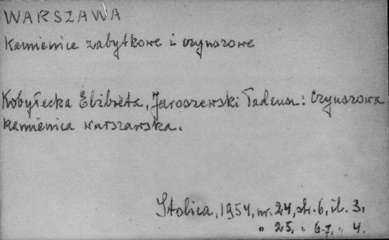 WARSZAWA
Kamienice zabytkowe i czynszowe
Kobyłecka Elżbieta, Jaroszewski Tadeusz: Czynszowa
kamienica warszawska.
Stolica, 1954, nr. 24, str. 6, il. 3,
" 25, " 6-7, " 4.